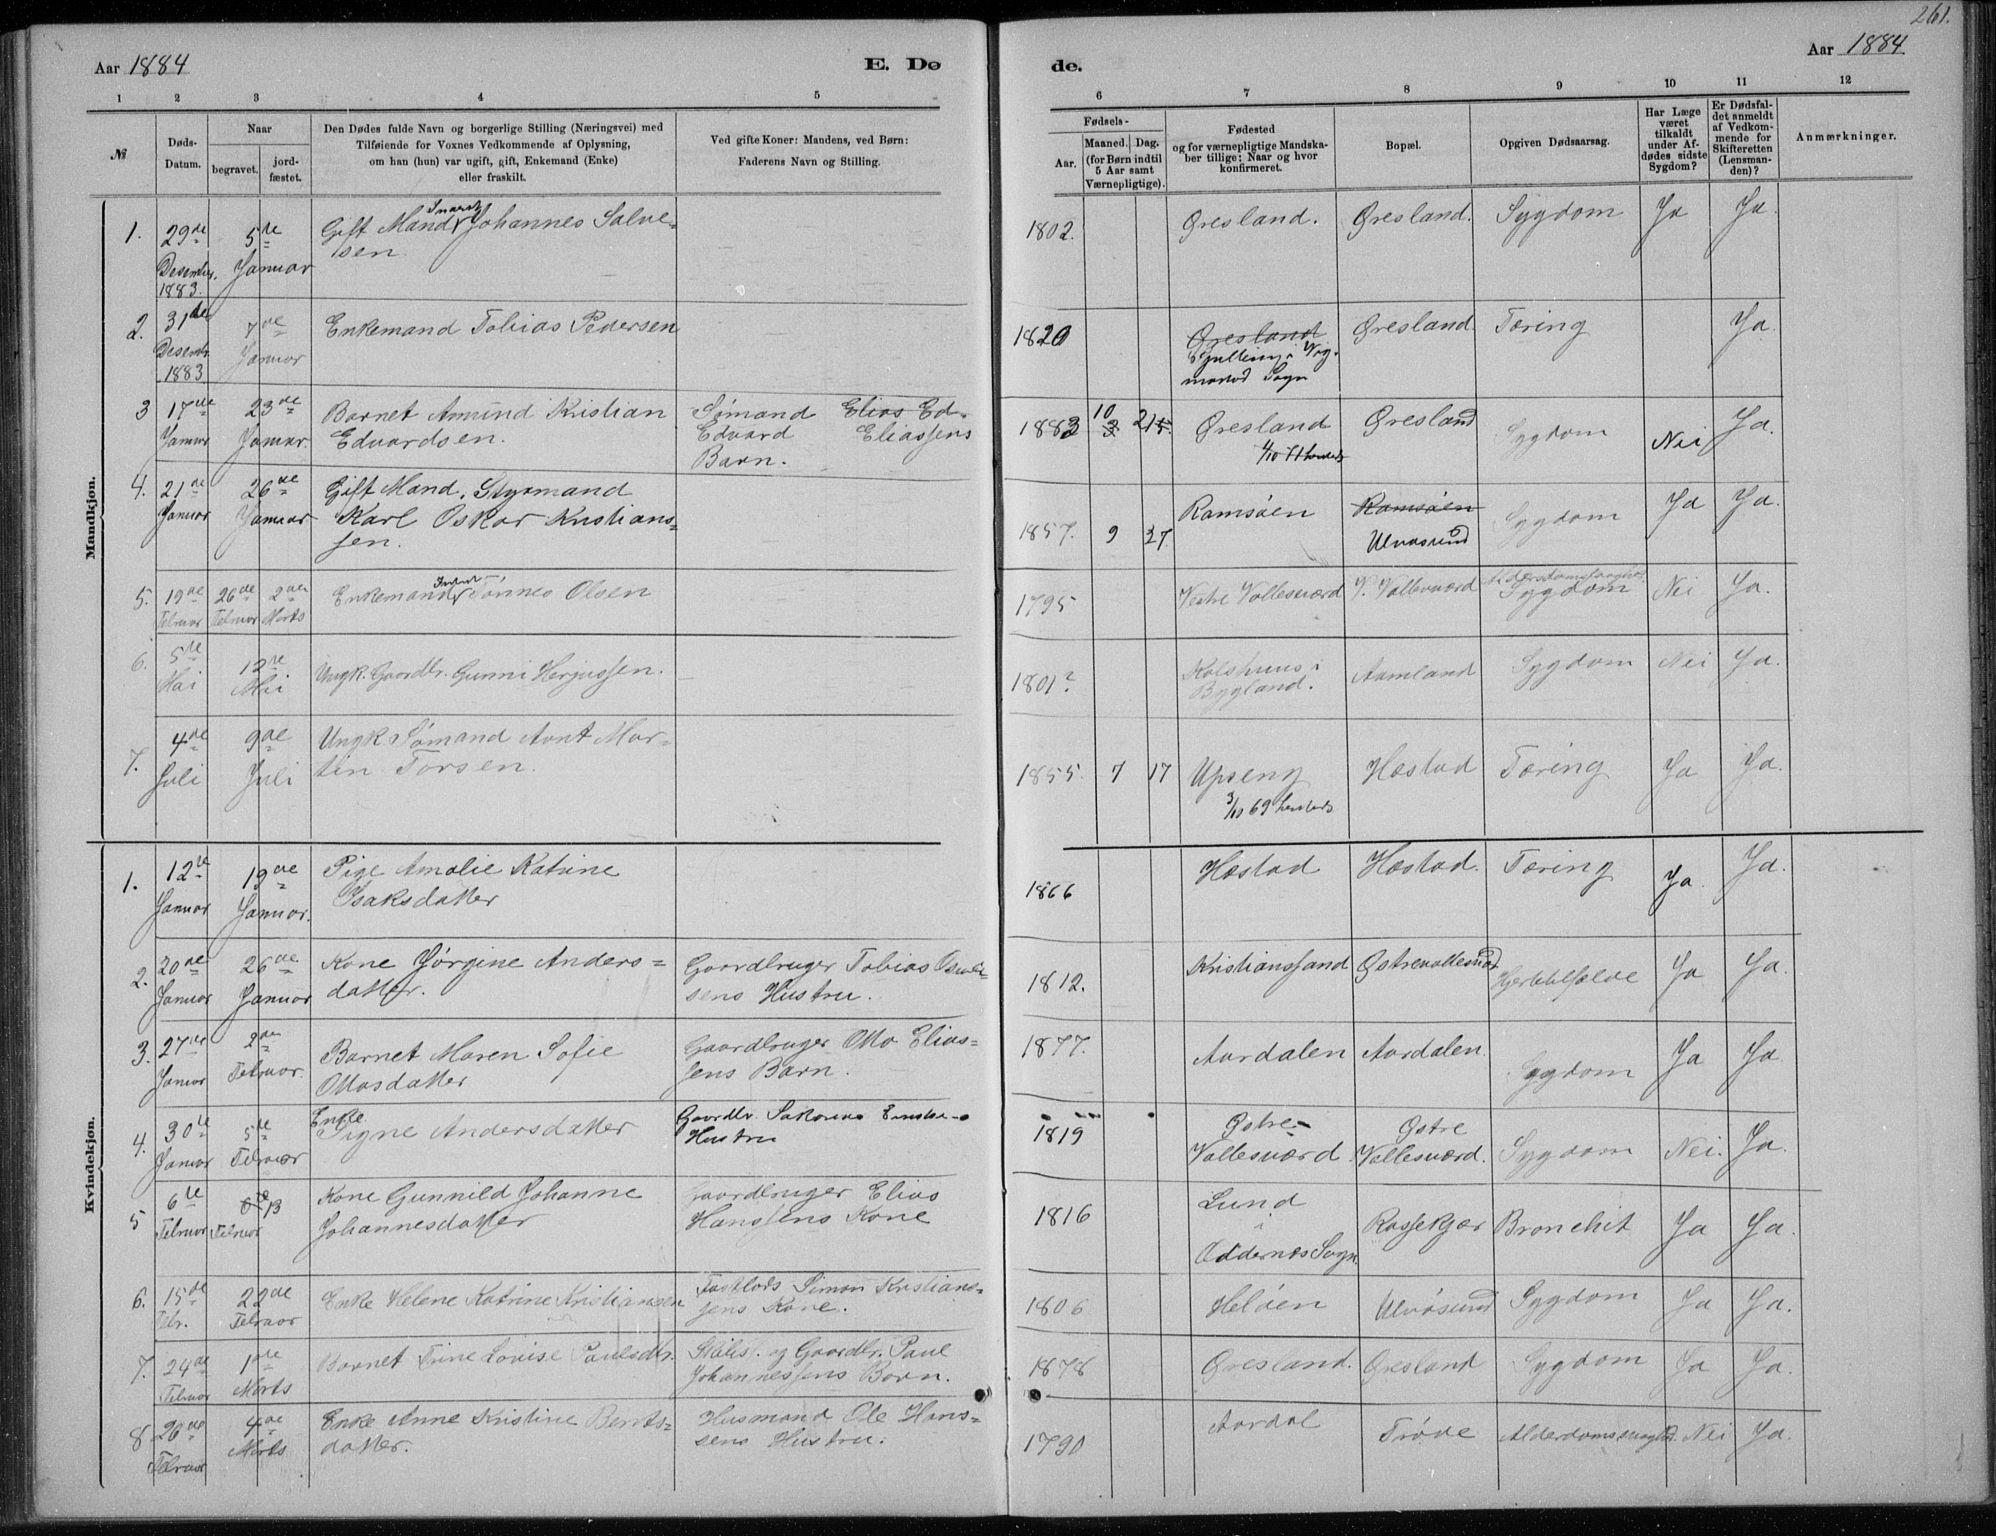 261.
Aar 1884
E. Dø
de.
Aar 1884
1 2 3 4 5
6 7 8 9 10 11 12
№
Døds-
Datum.
Naar
begravet.
jord-
fæstet.
Den Dødes fulde Navn og borgerlige Stilling (Næringsvei) med
Tilføiende for Voxnes Vedkommende af Oplysning,
om han (hun) var ugift, gift, Enkemand (Enke)
eller fraskilt.
Ved gifte Koner: Mandens, ved Børn:
Faderens Navn og Stilling.
Fødsels-
Aar.
Maaned. Dag.
(for Børn indtil
5 Aar samt
Værnepligtige).
Fødested
og for værnepligtige Mandska-
ber tillige: Naar og hvor
konfirmeret.
Bopæl.
Opgiven Dødsaarsag.
Har Læge
været
tilkaldt
under Af-
dødes sidste
Sygdom?
Er Dødsfal-
det anmeldt
af Vedkom-
mende for
Skifteretten
(Lensman-
den)?
Anmærkninger.
Mandkjøn.
1. 29de 5te Gift Mand Johannes Salve- 1802. Øresland. Øresland. Sygdom Ja Ja.
Desember Januar sen.
1883.
2. 31de 7de Enkemand Tobias Pedersen 1820 Øresland Øresland. Tæring Ja.
Desembr Januar
1883 Sogn
3 17de 23de Barnet Amund Kristian Sømand Elias Ed- 1883 10 3 21 Øresland Øresland Sygdom Nei Ja.
Januar Januar. Edvardsen. Edvard Eliassens
Barn.
4. 21de 26de Gift Mand, Styrmand 1857. 9 27. Ramsøen Ramsøen Sygdom Ja Ja.
Januar Januar Karl Oskar Kristians= Ulvøsund
sen.
5. 19de 26de 2den Enkemand Tønnes Olsen 1795 Vestre Vallesværd V. Vallesværd Sygdom Nei Ja.
Februar Februar Marts
6. 5te 12te Ungk. Gaardbr. Gunni Herjussen. 1801? Aamland Sygdom Nei Ja.
Mai Mai Bygland.
7. 4de 9de Ungk Sømand Aont Mar= 1855. 7 17 Upseng Hæstad Tæring Ja Ja.
Juli Juli tin Torsen. 3/10 69
Kvindekjøn.
1. 12te 19de Pige Amalie Katrine 1866 Hæstad Hæstad. Tæring Ja. Ja.
Januar Januar. Isaksdatter
2. 20de 26de Kone Jørgine Anders= Gaardbruger Tobias 1812. Kristianssand Østrevallesværd Ja Ja.
Januar Januar datter. sens Hustru.
3. 27de 2den Barnet Maren Sofie Gaardbruger Otto Elias= 1877. Aardalen Aardalen. Sygdom Ja Ja
Januar Februar. Ottosdatter sens Barn.
4. 30te 5te Enke Signe Andersdatter Gaardbr. 1819 Østre- Østre Sygdom Nei. Ja.
Januar Februar Hustru Vallesværd. Vallesværd.
5 6te 6te 13 Kone Gunnild Johanne Gaardbruger Elias 1816 Lund Rossekjær Bronchit Ja Ja.
Februar Februar Johannesdatter Hanssens Kone i
Oddernes Sogn.
6. 15de 22de Enke Helene Katrine Kristiansen Simon Kristian= 1806 Heløen Ulvøsund Sygdom Ja Ja.
Febr. Februar sens Kone.
7. 24de 1ste Barnet Trine Lovise Paulsdtr. og Gaardbr. Paul 1878 Øresland. Øresland Sygdom Ja Ja.
Februar Marts Johannessens Barn.
8 26de 4de Enke Anne Kristine Bents= Husmand Ole Hans= 1790 Aardal Trøde Alderdomssvaghed. Nei Ja.
Februar Marts datter. sens Hustru.